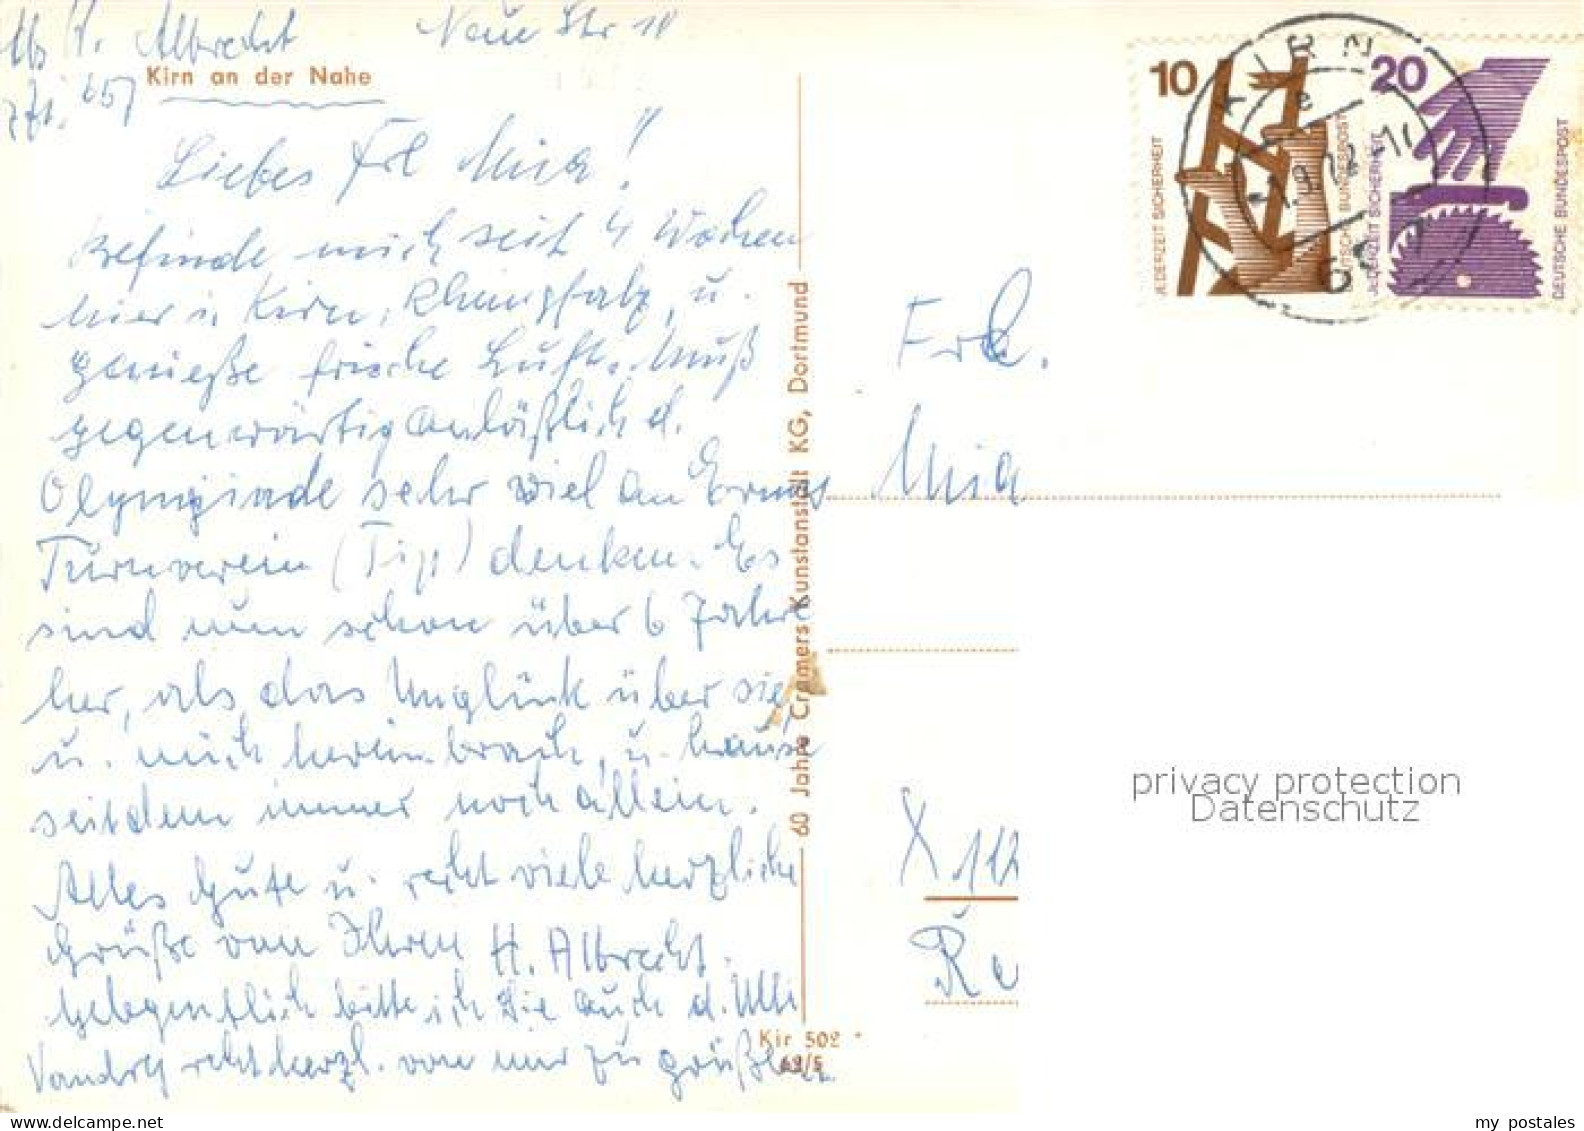 Abs H. Albrecht Neue Str 18
Kirn an der Nahe
zZt. 657
Liebes Frl Mia!
Befinde mich seit 4 Wochen
hier i. Kirn, Rheinpfalz, u.
genieße frische Luft. Muß
gegenwärtig anläßlich d.
Olympiade sehr viel an Erwins
Turnverein (Tip) denken. Es
sind nun schon über 6 Jahre
her, als das Unglück über sie
u. mich hereinbrach, u. hause
seitdem immer noch allein.
Alles Gute u. recht viele herzliche
Grüße von Ihrem H. Albrecht.
Gelegentlich bitte ich Sie auch d. Ulli
Vandrey recht herzl. von mir zu grüßen
60 Jahre Cramers Kunstanstalt KG, Dortmund
Kir 502 *
69/5
10
JEDERZEIT SICHERHEIT
DEUTSCHE BUNDESPOST
20
JEDERZEIT SICHERHEIT
DEUTSCHE BUNDESPOST
KIRN
Frl.
Mia
X 112
privacy protection
Datenschutz
my postales